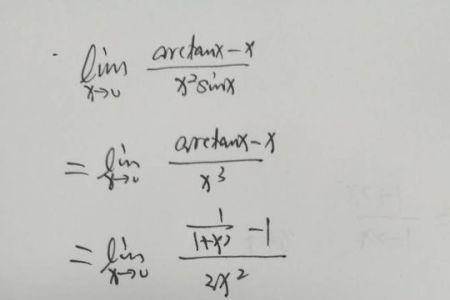 lim x→0 arctanx-x / x²sinx
= lim x→0 arctanx-x / x³
= lim x→0 1/1+x² -1 / 2x²